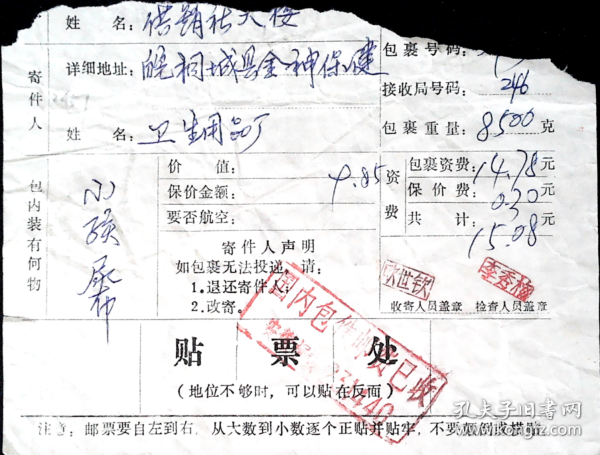 姓 名: 供销社大楼
详细地址: 皖桐城县金神保健
寄件人
姓 名: 卫生用品厂
包裹号码:
接收局号码: 246
包裹重量: 8500 克
包内装有何物
小孩尿布
价 值:
保价金额: 4.85
要否航空:
资费
包裹资费: 14.78 元
保价费: 0.30 元
共 计: 15.08 元
寄件人声明
如包裹无法投递,请:
1.退还寄件人.
2.改寄.
李秀梅
收寄人员盖章 检查人员盖章
国内包件邮费已收
贴 票 处
(地位不够时,可以贴在反面)
注意: 邮票要自左到右, 从大数到小数逐个正贴并贴牢, 不要颠倒或横贴
孔夫子旧书网